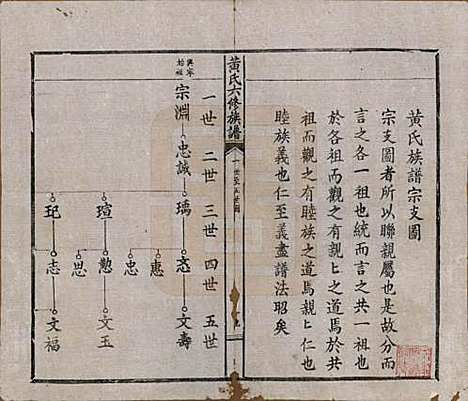 黃氏族譜宗支圖
宗支圖者所以聯親屬也是故分而
言之各一祖也統而言之共一祖也
於各祖而觀之有親〻之道焉於共
祖而觀之有睦族之道焉親〻仁也
睦族義也仁至義盡譜法昭矣
黃氏六修族譜
一世至五世圖
一世 二世 三世 四世 五世
興寧始祖
宗淵 忠誠 瑀 忞 文壽
惠
忠
瑄 懃 文玉
思
玘 志 文福